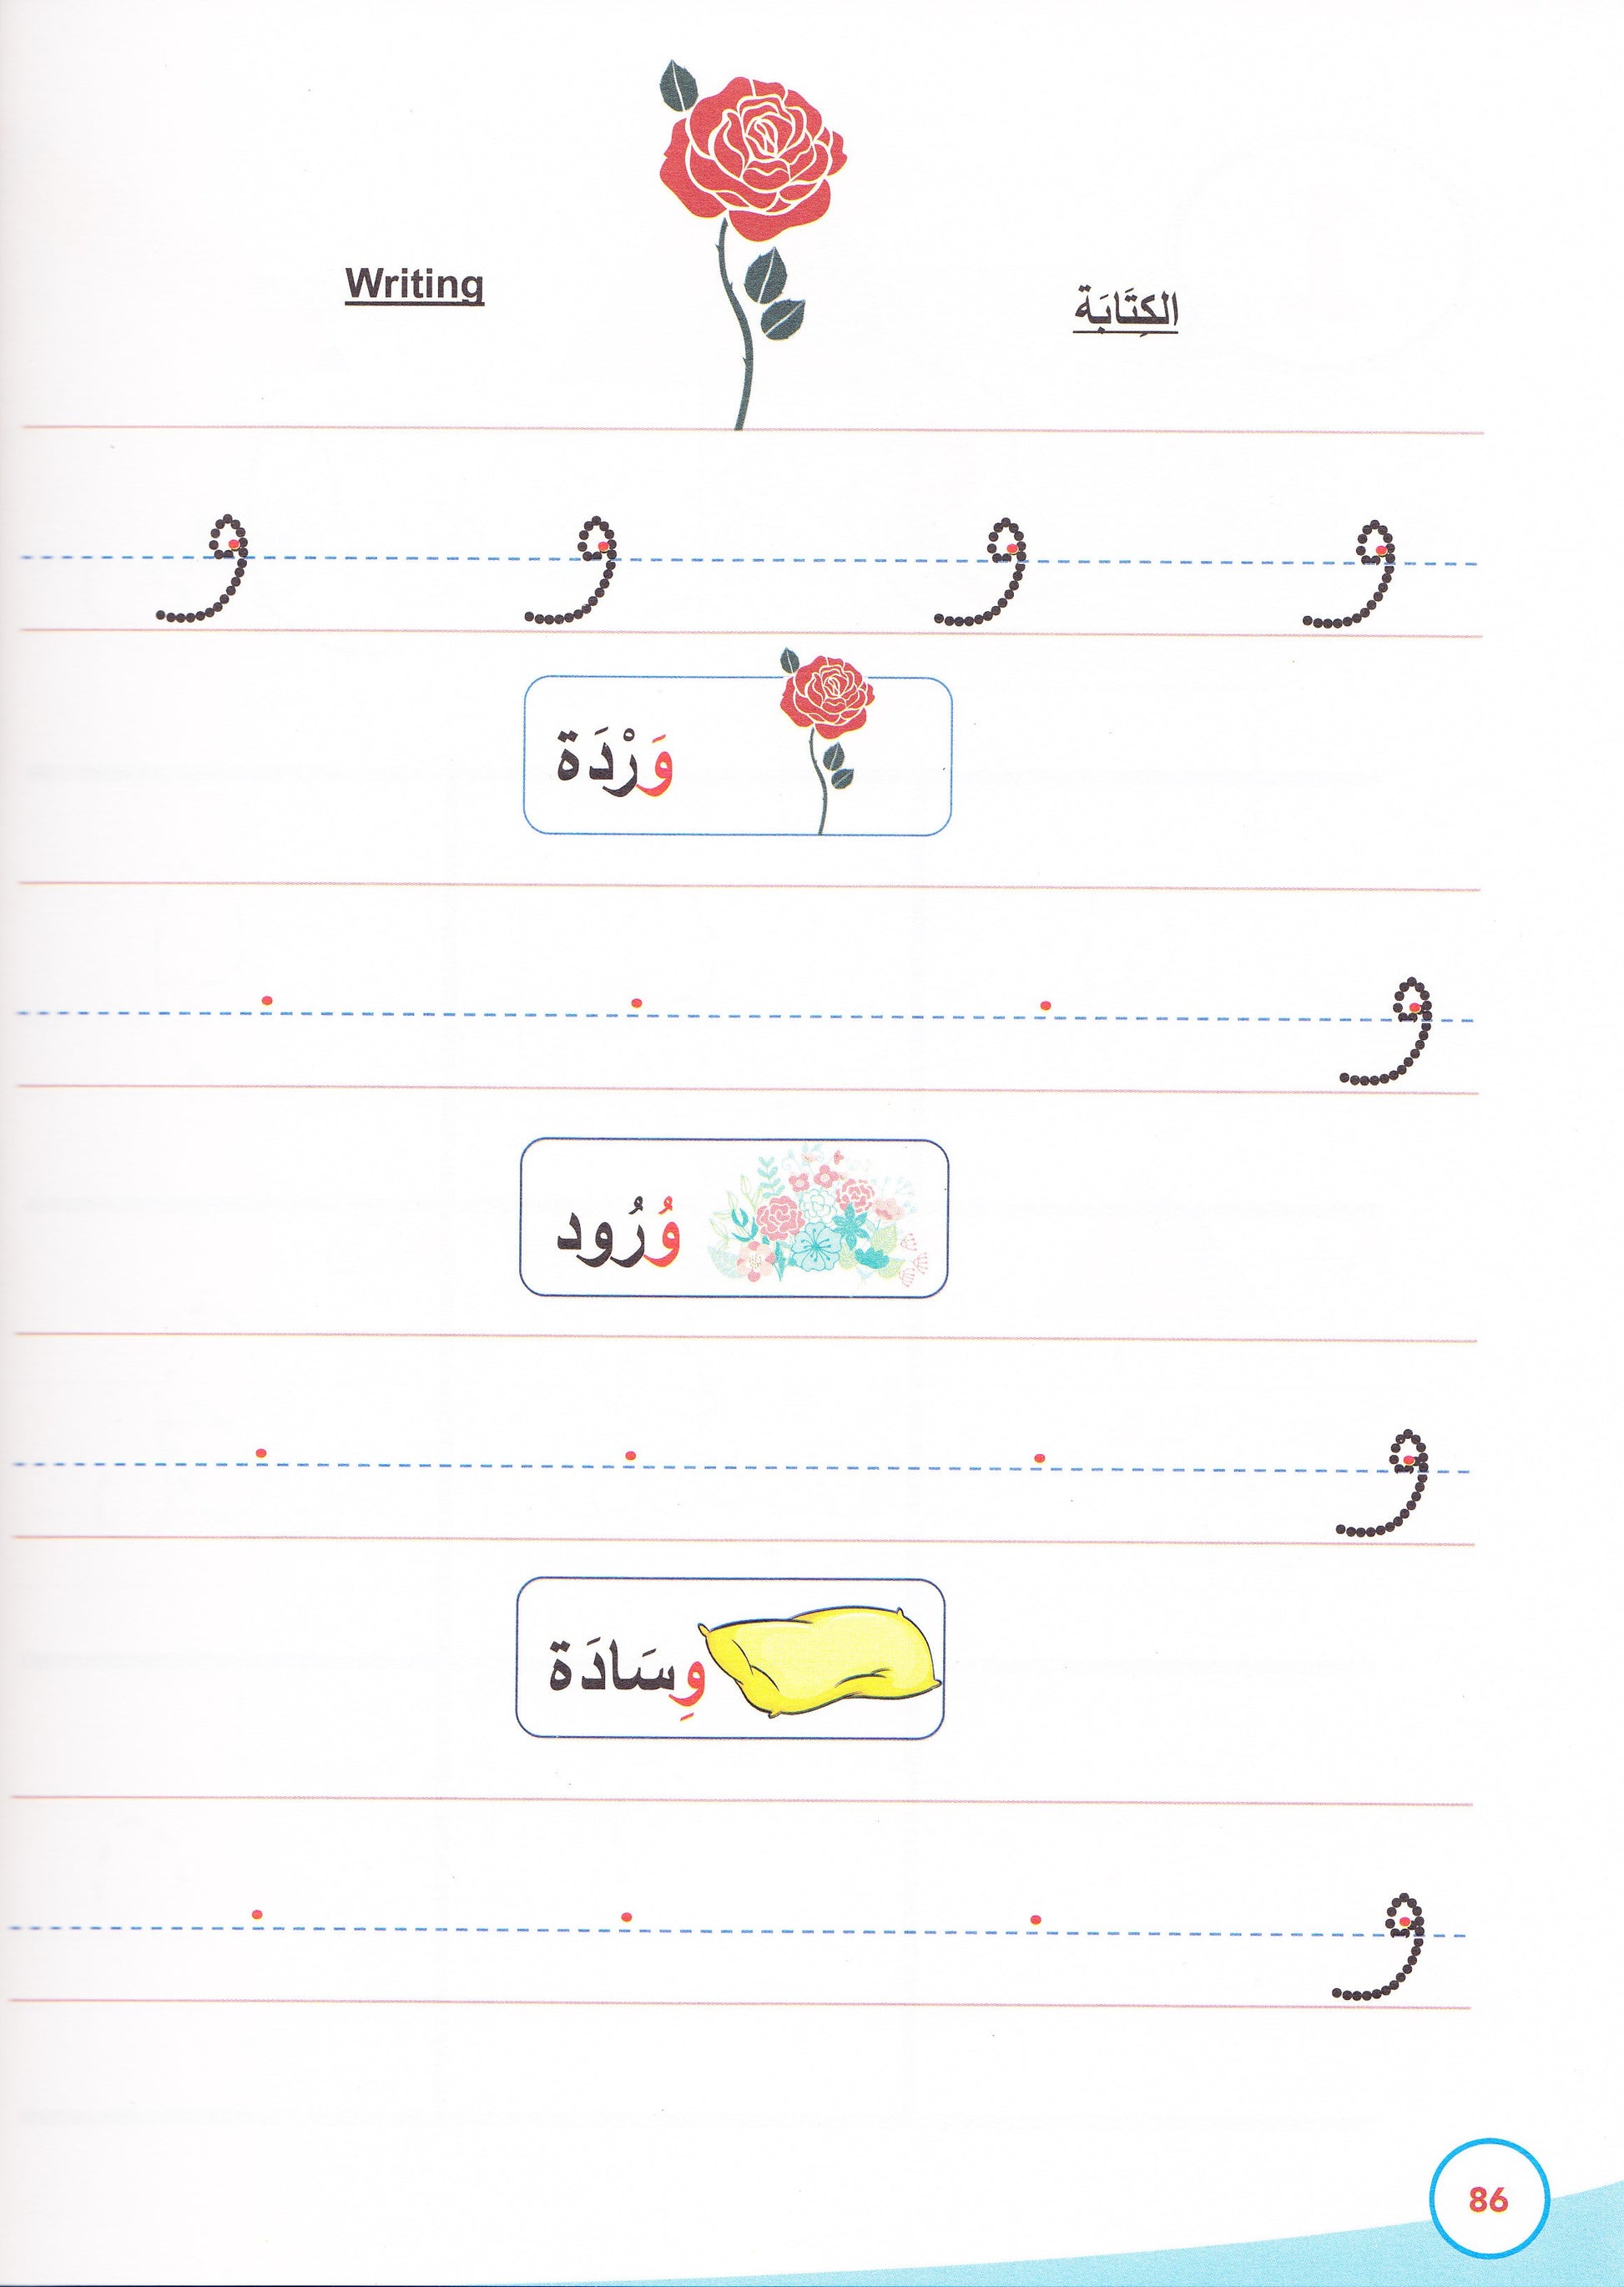 Writing الكِتَابَة
و و و و
وَرْدَة
و
وُرُود
و
وِسَادَة
و
86